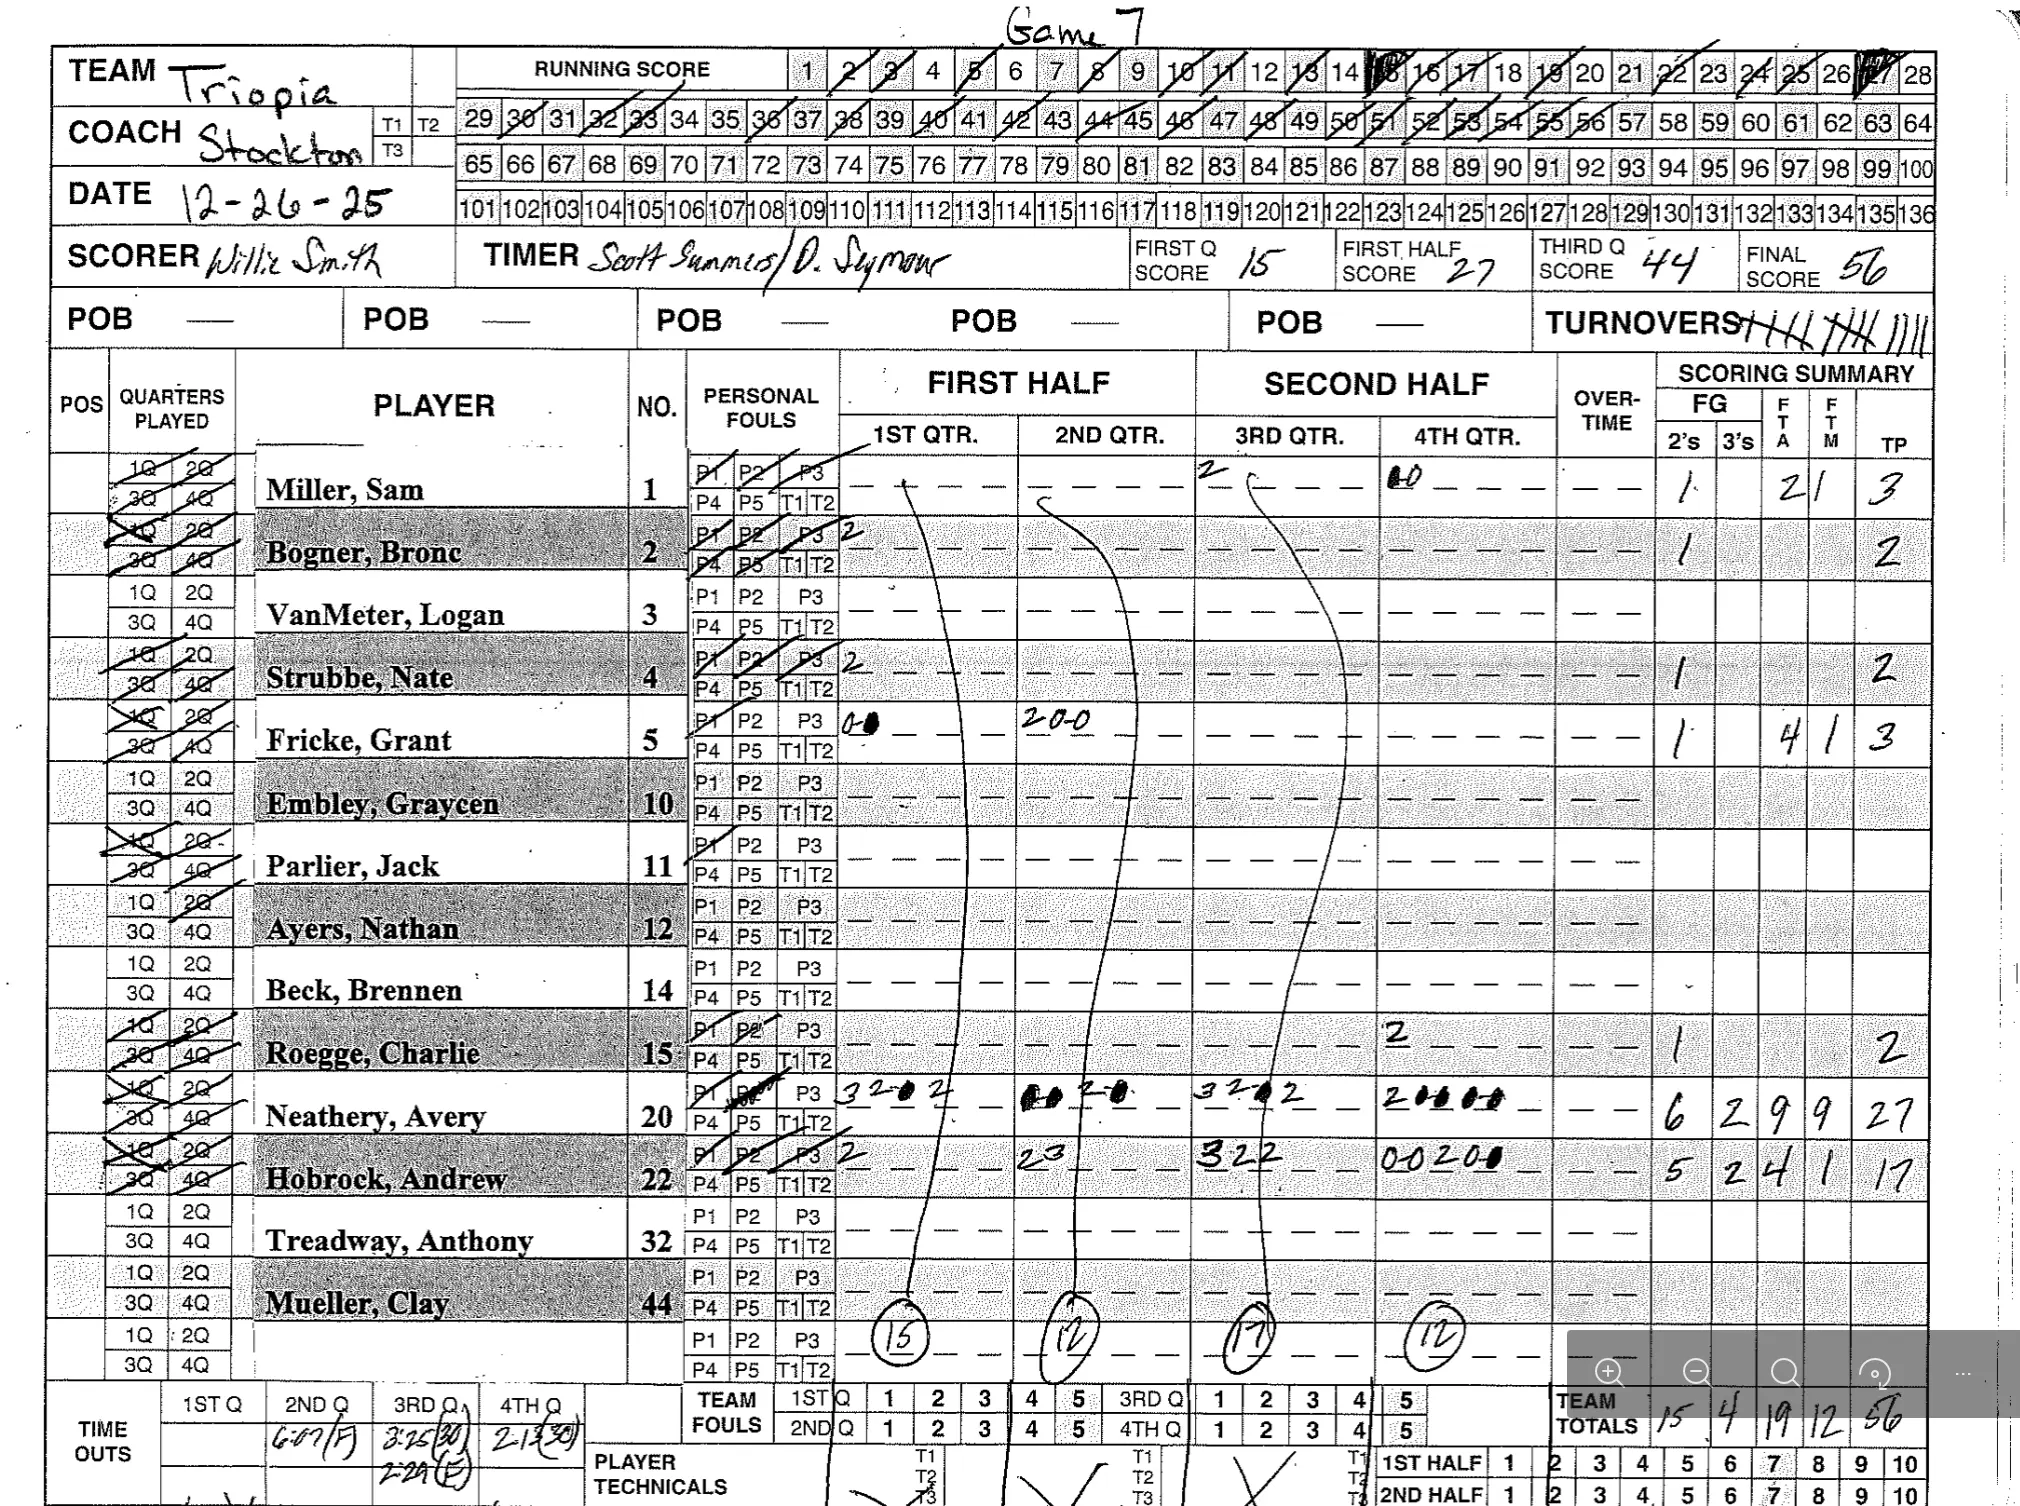 Game 7
TEAM Triopia
RUNNING SCORE 1 2 3 4 5 6 7 8 9 10 11 12 13 14 15 16 17 18 19 20 21 22 23 24 25 26 27 28
29 30 31 32 33 34 35 36 37 38 39 40 41 42 43 44 45 46 47 48 49 50 51 52 53 54 55 56 57 58 59 60 61 62 63 64
COACH Stockton T1 T2 T3
65 66 67 68 69 70 71 72 73 74 75 76 77 78 79 80 81 82 83 84 85 86 87 88 89 90 91 92 93 94 95 96 97 98 99 100
DATE 12-26-25
101 102 103 104 105 106 107 108 109 110 111 112 113 114 115 116 117 118 119 120 121 122 123 124 125 126 127 128 129 130 131 132 133 134 135 136
SCORER Willie Smith TIMER Scott Summers/D. Seymour FIRST Q SCORE 15 FIRST HALF SCORE 27 THIRD Q SCORE 44 FINAL SCORE 56
POB — POB — POB — POB — POB — TURNOVERS
POS QUARTERS PLAYED PLAYER NO. PERSONAL FOULS FIRST HALF SECOND HALF OVER-TIME SCORING SUMMARY
1ST QTR. 2ND QTR. 3RD QTR. 4TH QTR. FG 2's 3's FTA FTM TP
1Q 2Q P1 P2 P3 2
3Q 4Q Miller, Sam 1 P4 P5 T1 T2 1 2 1 3
1Q 2Q P1 P2 P3 2
3Q 4Q Bogner, Bronc 2 P4 P5 T1 T2 1 2
1Q 2Q P1 P2 P3
3Q 4Q VanMeter, Logan 3 P4 P5 T1 T2
1Q 2Q P1 P2 P3 2
3Q 4Q Strubbe, Nate 4 P4 P5 T1 T2 1 2
1Q 2Q P1 P2 P3 200
3Q 4Q Fricke, Grant 5 P4 P5 T1 T2 1 4 1 3
1Q 2Q P1 P2 P3
3Q 4Q Embley, Graycen 10 P4 P5 T1 T2
1Q 2Q P1 P2 P3
3Q 4Q Parlier, Jack 11 P4 P5 T1 T2
1Q 2Q P1 P2 P3
3Q 4Q Ayers, Nathan 12 P4 P5 T1 T2
1Q 2Q P1 P2 P3
3Q 4Q Beck, Brennen 14 P4 P5 T1 T2
1Q 2Q P1 P2 P3 2
3Q 4Q Roegge, Charlie 15 P4 P5 T1 T2 1 2
1Q 2Q P1 P2 P3
3Q 4Q Neathery, Avery 20 P4 P5 T1 T2 6 2 9 9 27
1Q 2Q P1 P2 P3 2 23 322
3Q 4Q Hobrock, Andrew 22 P4 P5 T1 T2 5 2 4 1 17
1Q 2Q P1 P2 P3
3Q 4Q Treadway, Anthony 32 P4 P5 T1 T2
1Q 2Q P1 P2 P3
3Q 4Q Mueller, Clay 44 P4 P5 T1 T2
1Q 2Q P1 P2 P3 15 12 17 12
3Q 4Q P4 P5 T1 T2
TIME OUTS 1ST Q 2ND Q 3RD Q 4TH Q
6:07(F) 3:25(30) 2:13(30)
2:29(F)
TEAM FOULS 1ST Q 1 2 3 4 5 3RD Q 1 2 3 4 5
2ND Q 1 2 3 4 5 4TH Q 1 2 3 4 5
TEAM TOTALS 15 4 19 12 56
PLAYER TECHNICALS T1 T2 T3 T1 T2 T3 T1 T2 T3
1ST HALF 1 2 3 4 5 6 7 8 9 10
2ND HALF 1 2 3 4 5 6 7 8 9 10